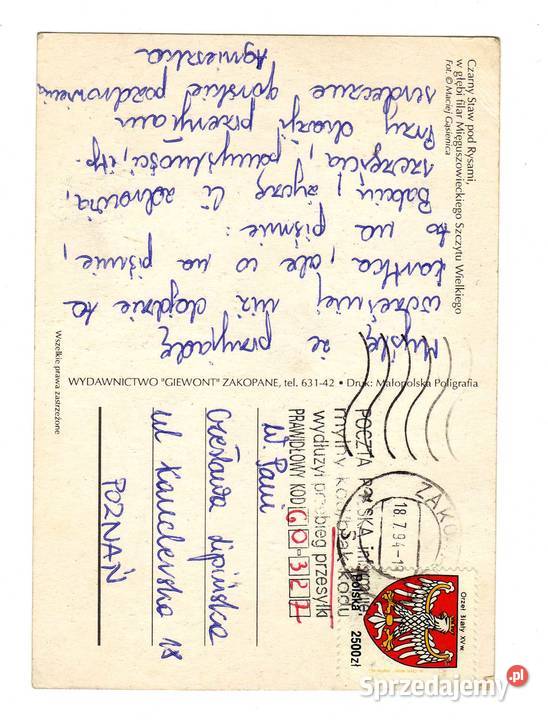 Czarny Staw pod Rysami,
w głębi filar Mięguszowieckiego Szczytu Wielkiego
Fot. © Maciej Gąsienica
Myślę, że przyjadę
wcześniej niż dojdzie ta
kartka, ale co na piśmie,
to na piśmie:
Babciu, życzę Ci zdrowia,
szczęścia, pomyślności, itp.
Przy okazji przesyłam
serdeczne górskie pozdrowienia
Agnieszka
WYDAWNICTWO "GIEWONT" ZAKOPANE, tel. 631-42 • Druk: Małopolska Poligrafia
Wszelkie prawa zastrzeżone
POCZTA POLSKA informuje
mylny kod brak kodu
wydłużył przebieg przesyłki
PRAWIDŁOWY KOD 60-327
ZAKO
18.7.94-19
Orzeł biały XV w.
Polska 2500zł
W. Pani
Czesława Lipińska
ul Kanclerska 18
POZNAŃ
Sprzedajemy.pl